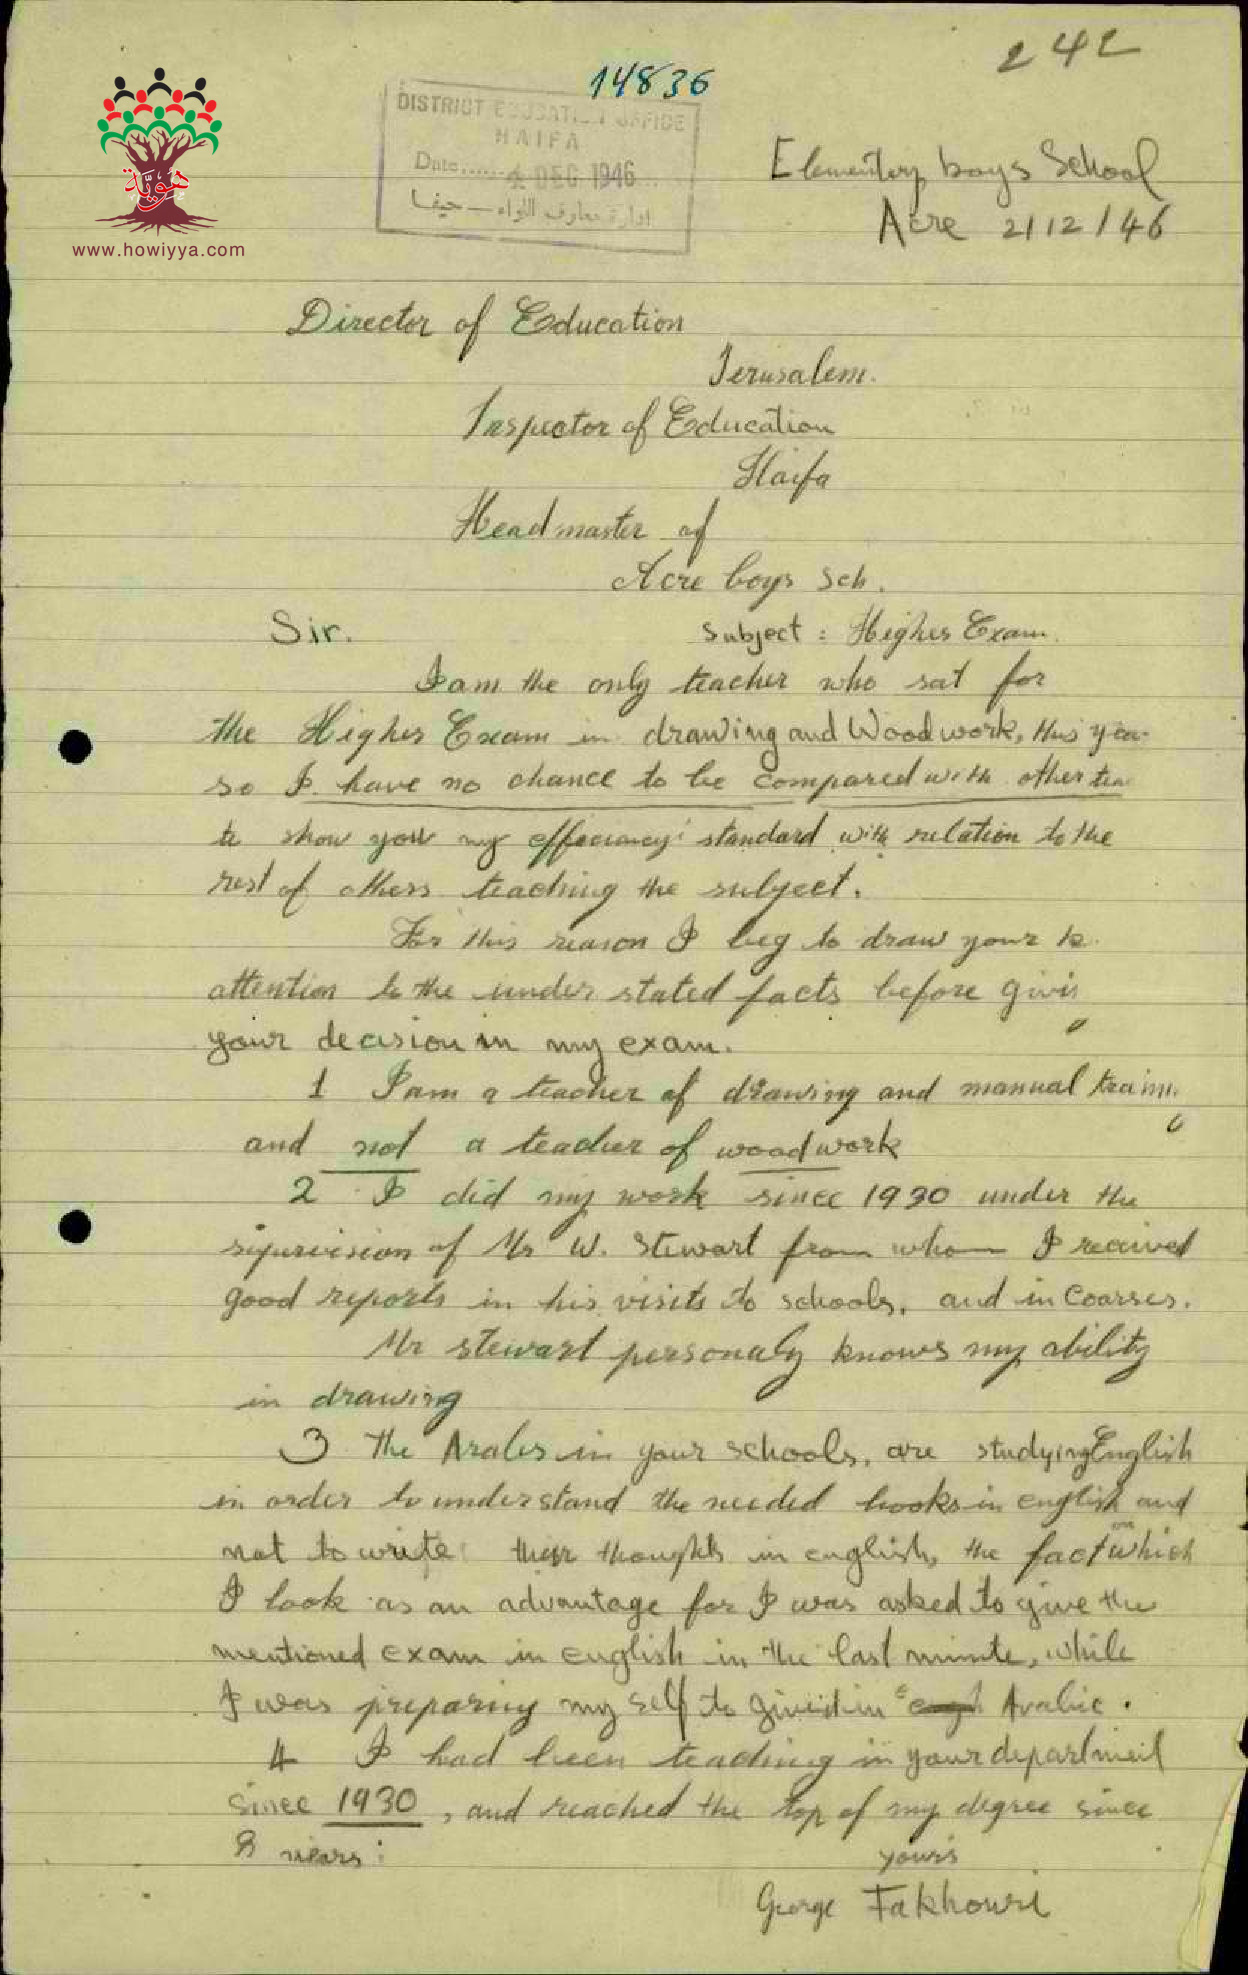 242
14836
DISTRICT EDUCATION OFFICE
HAIFA
Date...... 4 DEC 1946...
ادارة معارف اللواء — حيفا
هوية
www.howiyya.com
Elementary boys School
Acre 2/12/46
Director of Education
Jerusalem.
Inspector of Education
Haifa
Headmaster of
Acre boys sch.
Sir.
Subject : Higher Exam.
I am the only teacher who sat for
the Higher Exam in drawing and Woodwork, this yea
so I have no chance to be compared with other tea
to show you my effeciancy standard with relation to the
rest of others teaching the subject.
For this reason I beg to draw your k
attention to the under stated facts before givin
your decision in my exam.
1 I am a teacher of drawing and manual train
and not a teacher of woodwork
2 I did my work since 1930 under the
supervision of Mr W. Stewart from whom I received
good reports in his visits to schools, and in coarses.
Mr stewart personaly knows my ability
in drawing
3 The Arabs in your schools, are studying English
in order to understand the needed books in english and
not to write their thoughts in english, the fact on which
I look as an advantage for I was asked to give the
mentioned exam in english in the last minute, while
I was preparing my self to give it in Arabic.
4 I had been teaching in your department
since 1930, and reached the top of my degree since
8 years.
yours
George Fakhouri